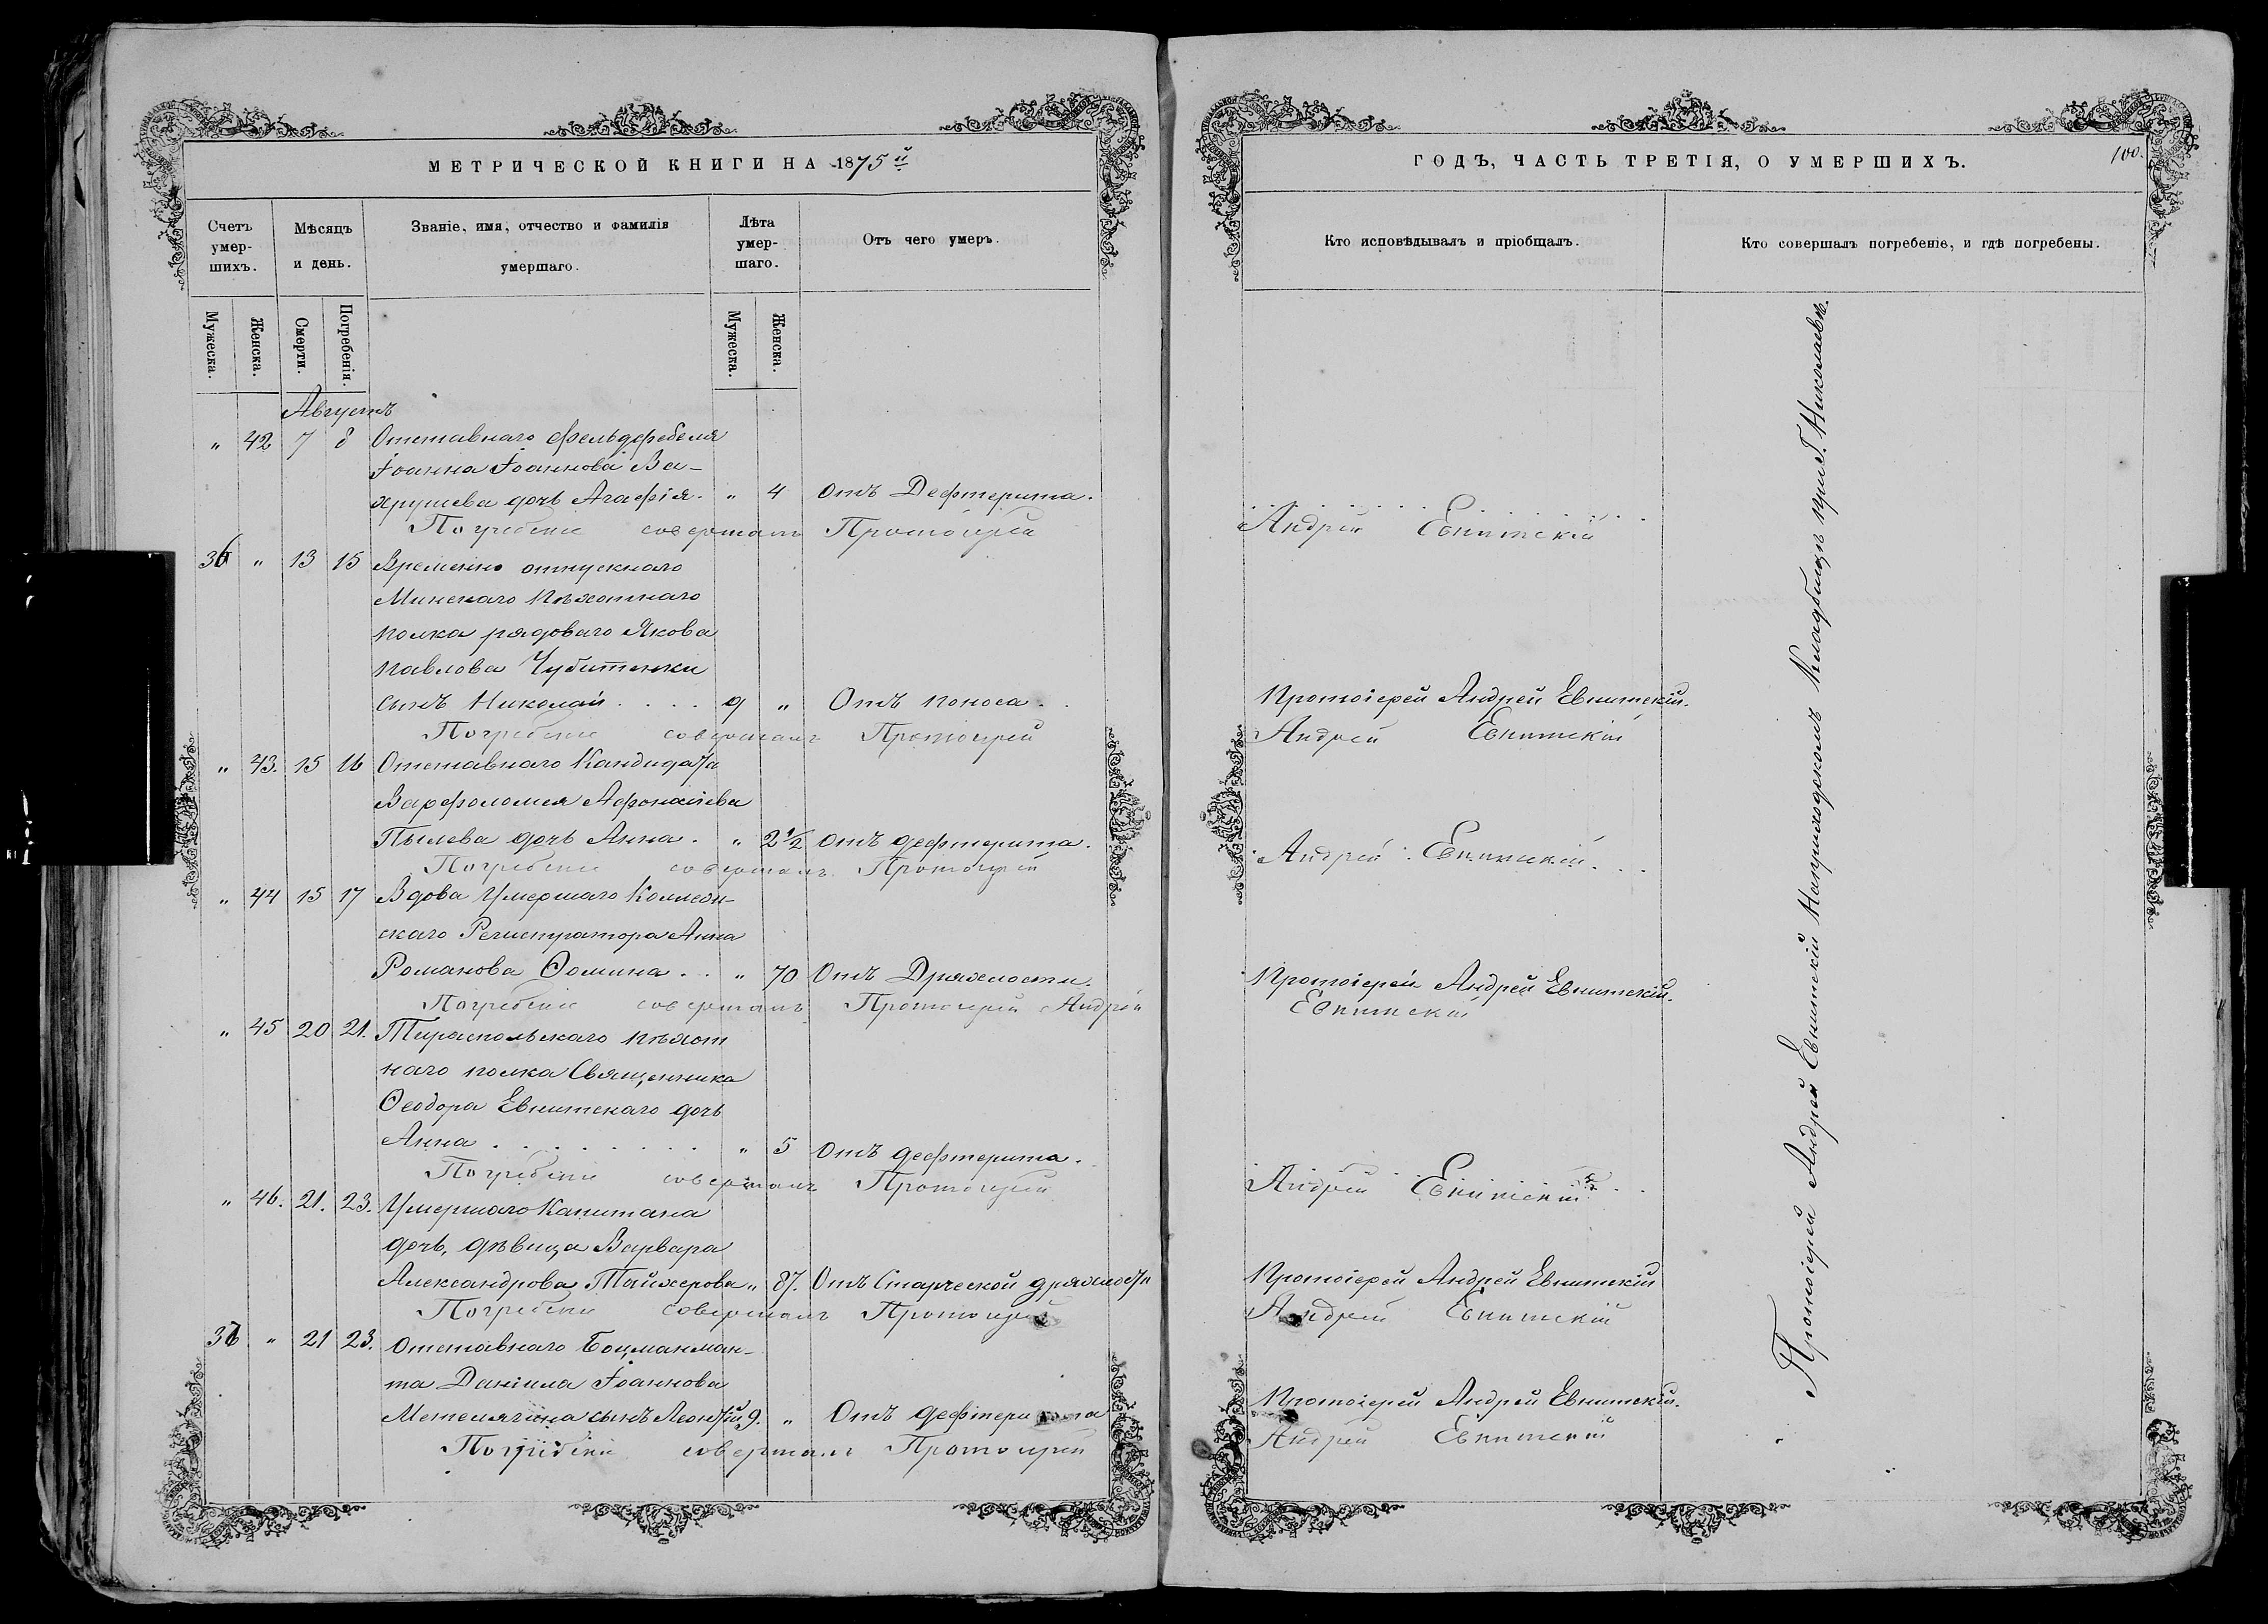 МЕТРИЧЕСКОЙ КНИГИ НА 1875й
Счетъ умер-шихъ.
Мѣсяцъ и день.
Званіе, имя, отчество и фамилія умершаго.
Лѣта умер-шаго.
Отъ чего умеръ.
Мужеска.
Женска.
Смерти.
Погребенія.
Мужеска.
Женска.
Августъ
" 42 7 8 Отставнаго фельдфебеля
Іоанна Іоаннова Ва-
хрушева дочь Агафія. " 4 Отъ Дефтерита.
Погребеніе совершалъ Протоіерей
36 " 13 15 Временно отпускнаго
Минскаго Пѣхотнаго
полка рядоваго Якова
Павлова Чубитенки
сынъ Николай . . . . 9 " Отъ поноса.
Погребеніе совершалъ Протоіерей
" 43. 15 16 Отставнаго Кандидата
Варфоломея Афонасіева
Пылева дочь Анна. " 2 1/2 Отъ дефтерита.
Погребеніе совершалъ Протоіерей
" 44 15 17 Вдова Умершаго Коллеж-
скаго Регистратора Анна
Романова Ѳомина . . " 70 Отъ Дряхлости.
Погребеніе совершалъ Протоіерей Андрей
" 45 20 21. Тираспольскаго пѣхот
наго полка Священника
Ѳеодора Евнитскаго дочь
Анна . . . . . . . " 5 Отъ дефтерита.
Погребеніе совершалъ Протоіерей
" 46. 21. 23. Умершаго Капитана
дочь, дѣвица Варвара
Александрова " 87. Отъ Старческой дряхлости
Погребеніе совершалъ Протоіерей
37 " 21 23. Отставнаго Боцманман-
та Даніила Іоаннова
Метелягина сынъ Леонтій 9. " Отъ дефтерита
Погребеніе совершалъ Протоіерей
ГОДЪ, ЧАСТЬ ТРЕТІЯ, О УМЕРШИХЪ.
100.
Кто исповѣдывалъ и пріобщалъ.
Кто совершалъ погребеніе, и гдѣ погребены.
Андрей Евнитскій
Протоіерей Андрей Евнитскій.
Андрей Евнитскій
Андрей Евнитскій
Протоіерей Андрей Евнитскій.
Евнитскій
Андрей Евнитскій
Протоіерей Андрей Евнитскій
Андрей Евнитскій
Протоіерей Андрей Евнитскій.
Андрей Евнитскій
Протоіерей Андрей Евнитскій на приходскомъ Кладбищѣ при Г. Николаевѣ.